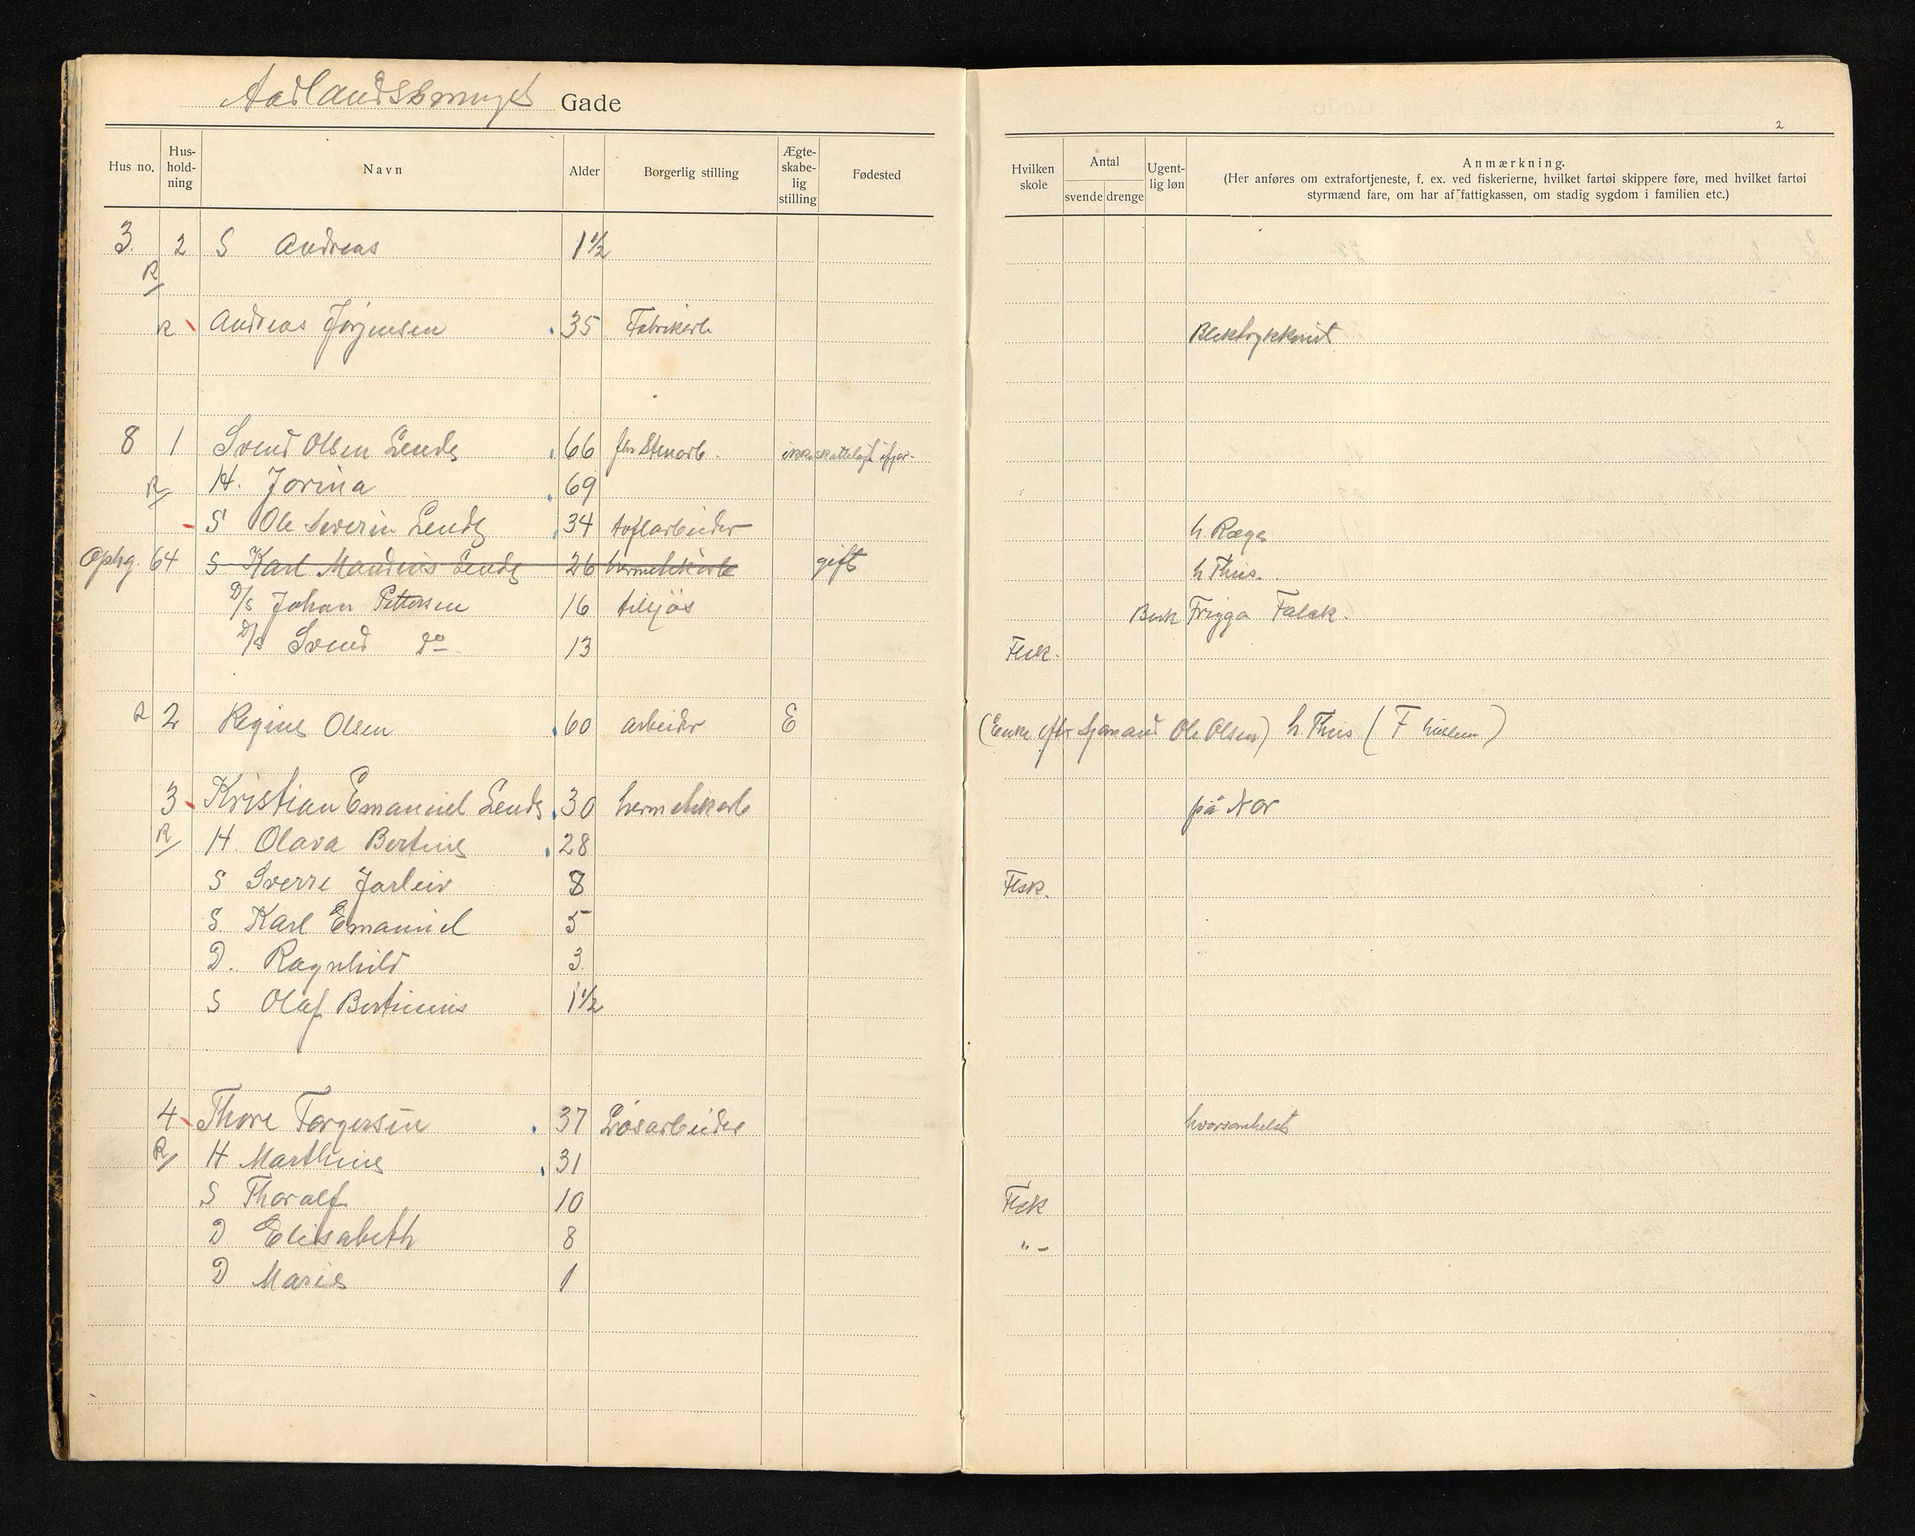 Gade
2
Hus no. Hus-holdning Navn Alder Borgerlig stilling Ægte-skabe-lig stilling Fødested Hvilken skole Antal svende drenge Ugent-lig løn Anmærkning.
(Her anføres om extrafortjeneste, f. ex. ved fiskerierne, hvilket fartøi skippere føre, med hvilket fartøi
styrmænd fare, om har af fattigkassen, om stadig sygdom i familien etc.)
3. 2 S Andreas 1 1/2
R
R Andreas Jørgensen 35 Fabrikarb Blektrykkeriet
8 1 Svend Olsen Lende 66 fhv Stenarb. ikke skattelagt ifjor
R H. Jorina 69
S Ole Severin Lende 34 toflarbeider h. Ræge
Ophg. 64 S Karl Mandius Lende 26 hermetikarb gift h Thiis.
D/S Johan Pettersen 16 tilsjøs Bark Frigga Falck.
D/S Svend do 13 Flsk.
R 2 Regine Olsen 60 arbeider E (Enke efter sjømand Ole Olsen) h. Thiis (F)
3 Kristian Emanuel Lende 30 hermetikarb på Nor
R H. Olava Bertine 28
S Sverre Jarleiv 8 Flsk.
S Karl Emanuel 5
D. Ragnhild 3
S Olaf Bertinius 1 1/2
4 Thore Torgersen 37 Løsarbeider hvorsomhelst
R H Marthine 31
S Thoralf 10 Flsk
D Elisabeth 8 " -
D Marie 1